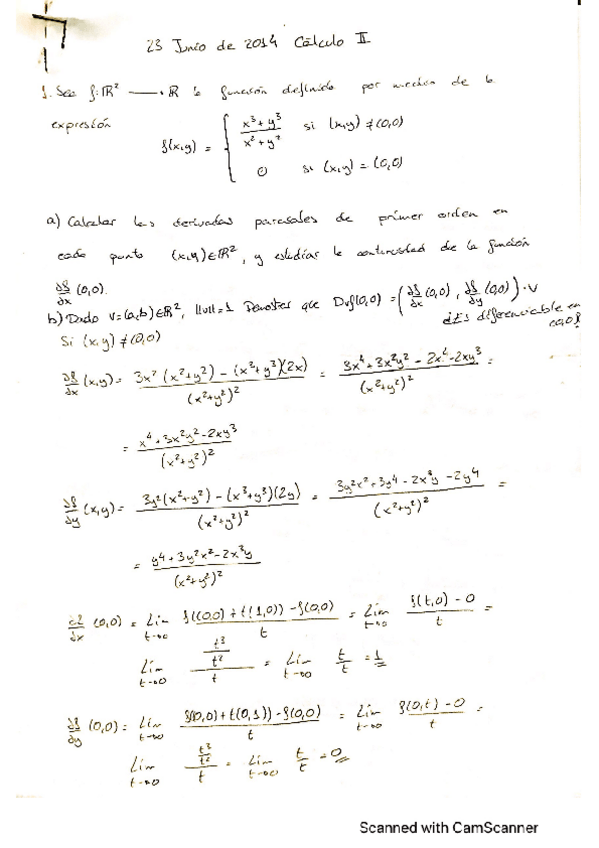 7
23 Junio de 2014 Cálculo II
1. Sea f:ℝ² → ℝ la función definida por medio de la
expresión
f(x,y) = { (x³+y³)/(x²+y²) si (x,y) ≠ (0,0)
0 si (x,y) = (0,0)
a) Calcular las derivadas parciales de primer orden en
cada punto (x,y)∈ℝ², y estudiar la continuidad de la función
∂f/∂x (0,0).
b) Dado v=(a,b)∈ℝ², ||v||=1 Demostrar que Dvf(0,0) = (∂f/∂x (0,0), ∂f/∂y (0,0))·v
¿Es diferenciable en (0,0)?
Si (x,y) ≠ (0,0)
∂f/∂x (x,y) = (3x²(x²+y²) - (x³+y³)(2x))/(x²+y²)² = (3x⁴+3x²y² - 2x⁴-2xy³)/(x²+y²)² =
= (x⁴+3x²y²-2xy³)/(x²+y²)²
∂f/∂y (x,y) = (3y²(x²+y²) - (x³+y³)(2y))/(x²+y²)² = (3y²x²+3y⁴-2x³y-2y⁴)/(x²+y²)² =
= (y⁴+3y²x²-2x³y)/(x²+y²)²
∂f/∂x (0,0) = Lim t→0 (f((0,0)+t(1,0)) - f(0,0))/t = Lim t→0 (f(t,0) - 0)/t =
Lim t→0 (t³/t²)/t = Lim t→0 t/t = 1
∂f/∂y (0,0) = Lim t→0 (f(0,0)+t(0,1)) - f(0,0))/t = Lim t→0 (f(0,t) - 0)/t =
Lim t→0 (t³/t²)/t = Lim t→0 t/t = 0
Scanned with CamScanner